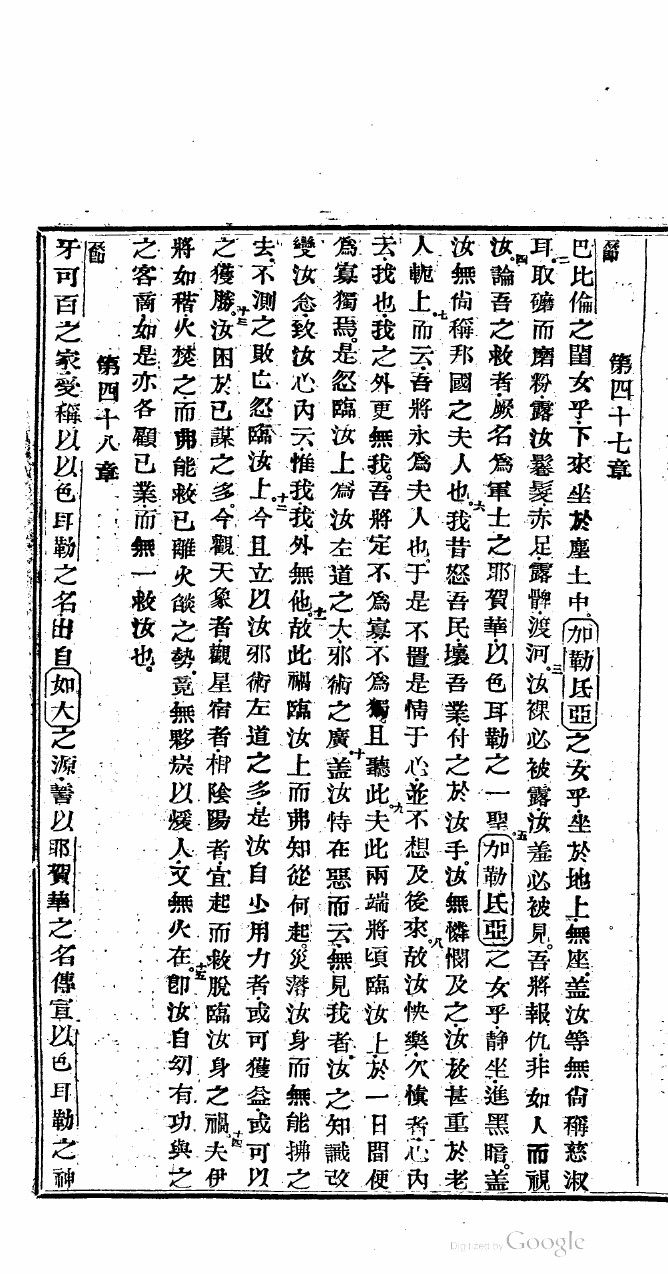 第四十七章
節
巴比倫之閨女乎下來坐於塵土中。加勒氐亞之女乎坐於地上無座。盖汝等無尙稱慈淑
二
耳取磨而磨粉露汝鬆髮赤足露髀渡河。三汝裸必被露汝羞必被見。吾將報仇非如人而視
汝。四論吾之救者厥名爲軍士之耶賀華以色耳勒之一聖。五加勒氐亞之女乎靜坐進黑暗。盖
汝無尙稱邦國之夫人也。六我昔怒吾民壞吾業付之於汝手。汝無憐憫及之汝放甚重於老
人軛上。七而云吾將永爲夫人也。于是不置是情于心並不想及後來。八故汝怏樂欠愼者心內
去我也我之外更無我。吾將定不爲寡不爲獨且聽此。九夫此兩端將頃臨汝上於一日間便
爲寡獨焉。是忽臨汝上爲汝左道之大邪術之廣。十盖汝恃在惡而云無見我者汝之知識改
變汝忿致汝心內云惟我我外無他。十一故此禍臨汝上而弗知從何起。災落汝身而無能拂之
去。不測之敗亡忽臨汝上。十二今且立以汝邪術左道之多是汝自少用力者或可獲益或可以
之獲勝。十三汝困於己謀之多。今觀天象者觀星宿者相陰陽者宜起而救脫臨汝身之禍。十四夫伊
將如稭火焚之而弗能救己離火燄之勢。竟無夥炭以煖人又無火在。十五卽汝自幼有功與之
之客商如是亦各顧己業而無一救汝也。
第四十八章
節
牙可百之家受稱以以色耳勒之名出自如大之源誓以耶賀華之名傳宣以色耳勒之神
Digitized by Google